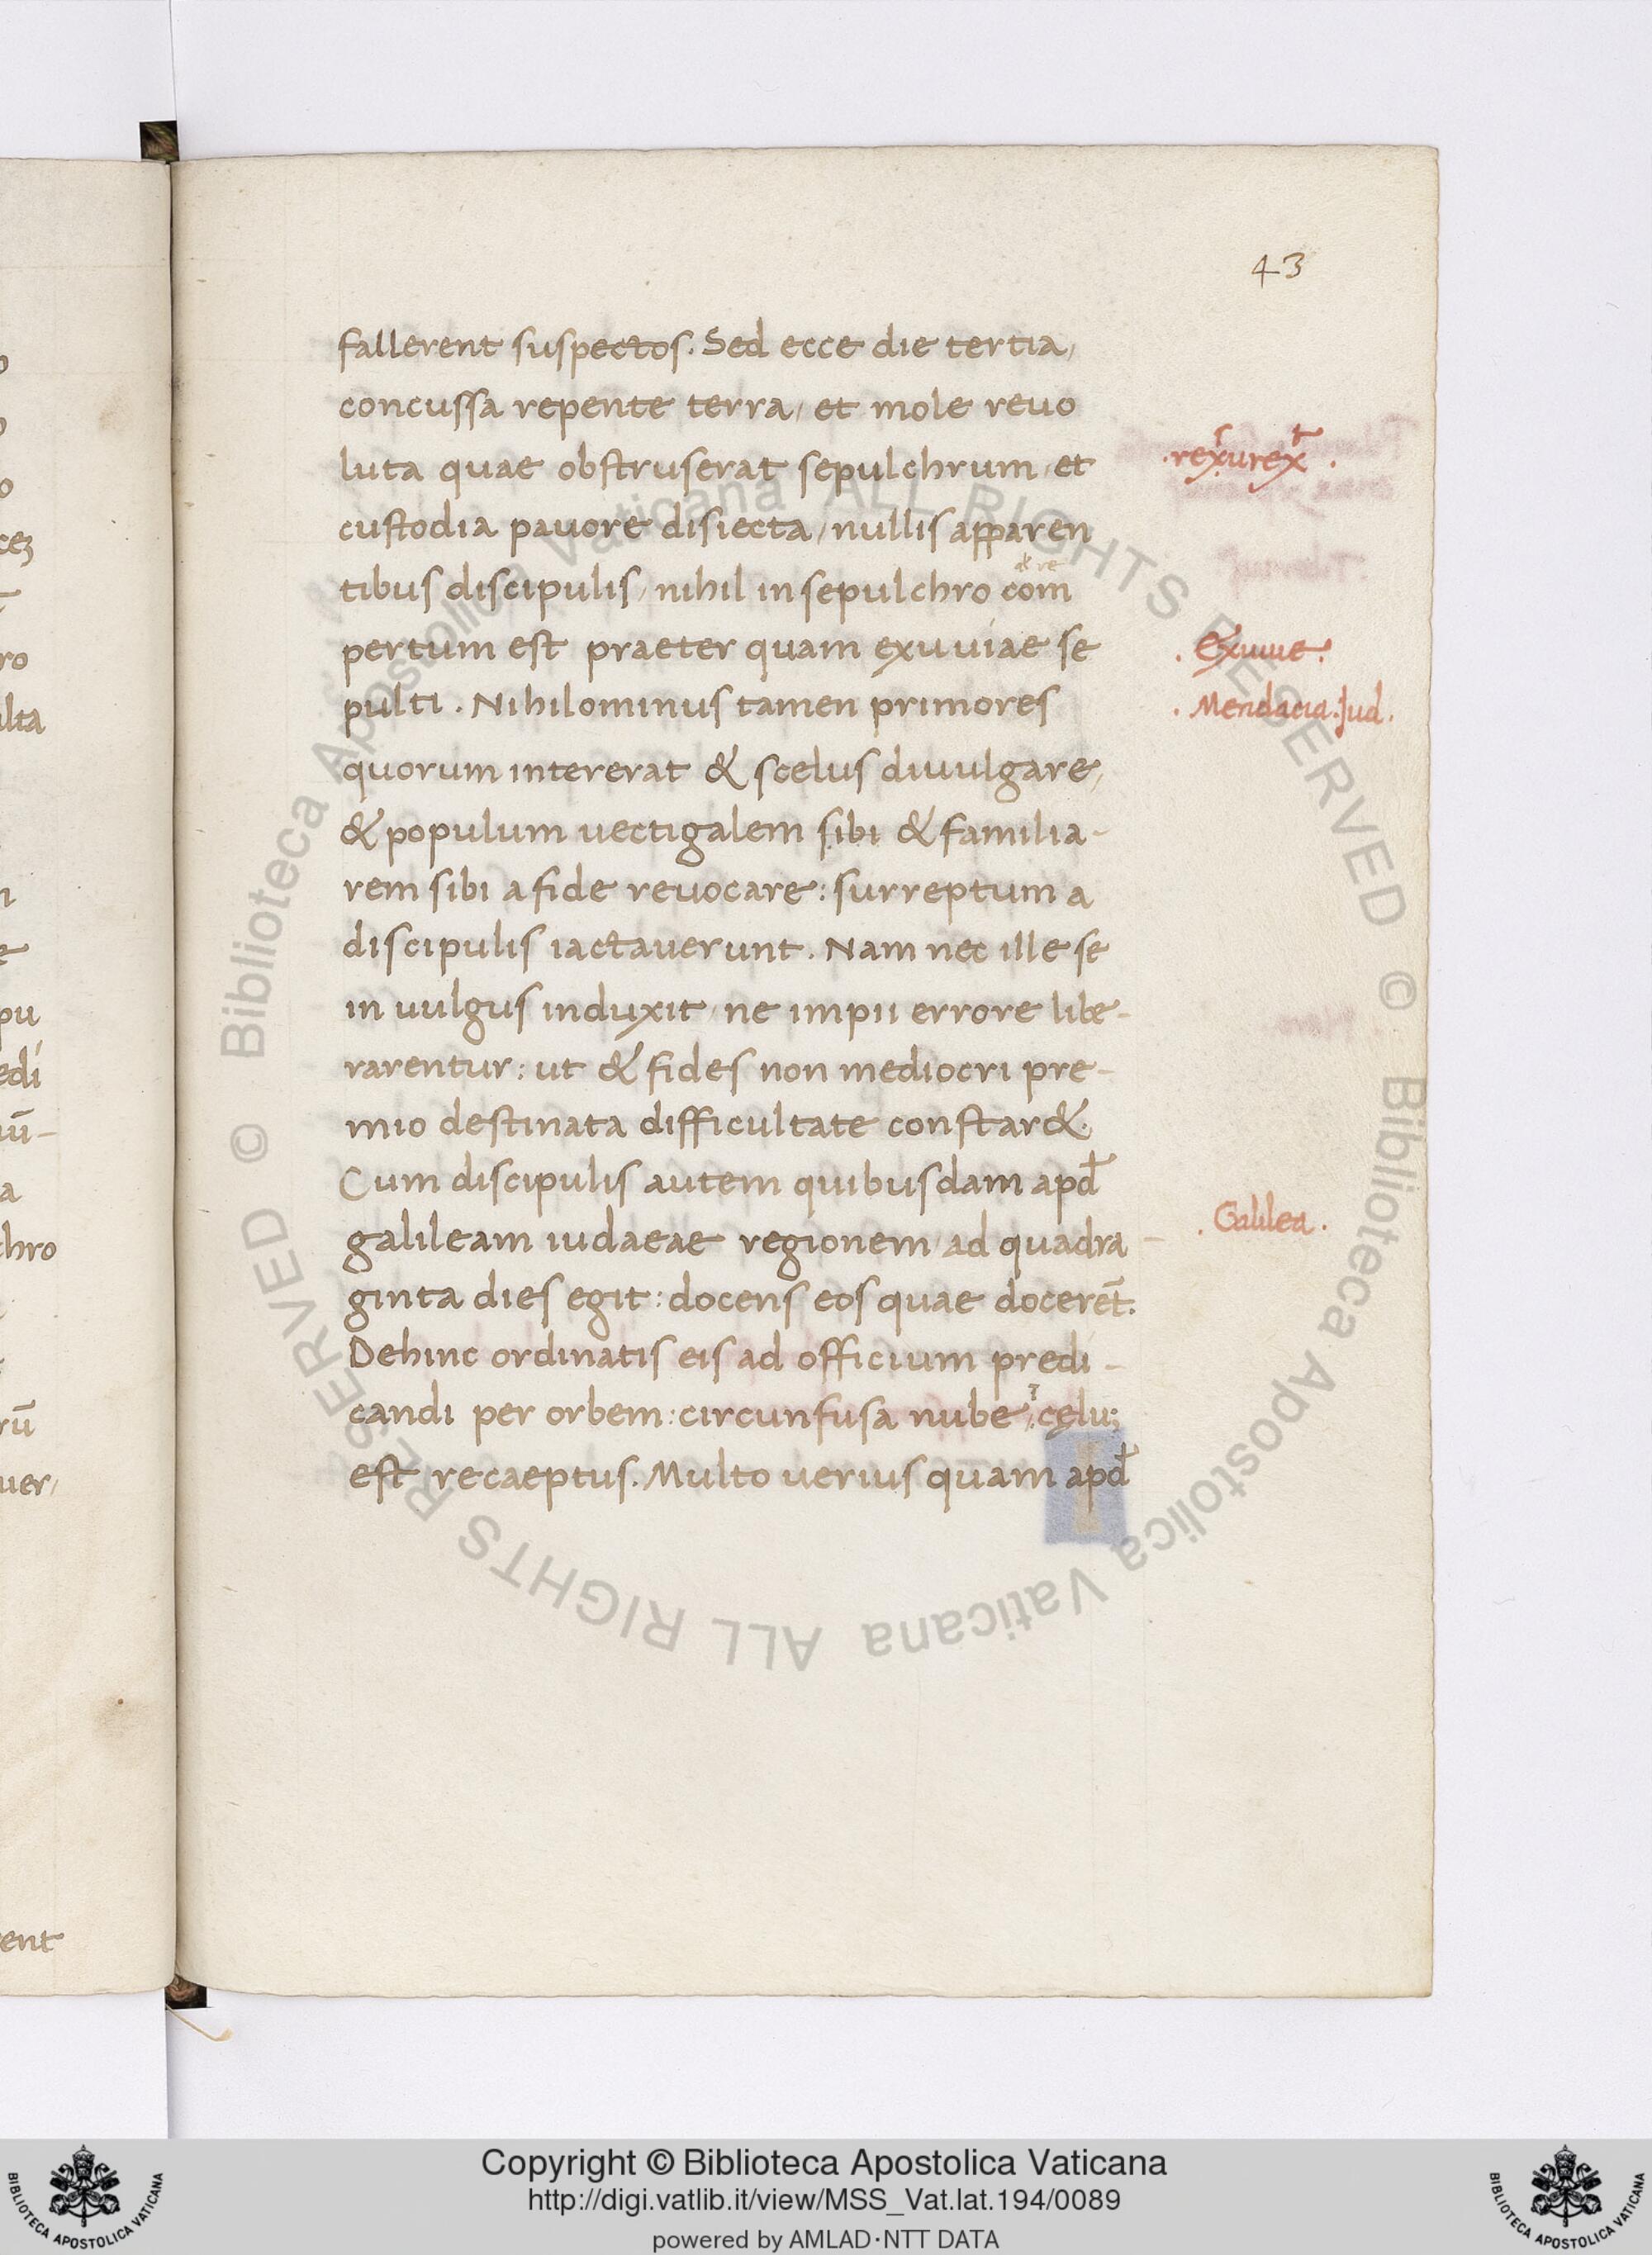 43
fallerent suspectos. Sed ecce die tertia,
concussa repente terra, et mole reuo
luta quae obstruserat sepulchrum, et
custodia pauore disiecta, nullis apparen
tibus discipulis, nihil in sepulchro com
pertum est praeter quam exuuiae se
pulti. Nihilominus tamen primores
quorum intererat & scelus diuulgare,
& populum uectigalem sibi & familia-
rem sibi a fide reuocare: surreptum a
discipulis iactauerunt. Nam nec ille se
in uulgus induxit, ne impii errore libe-
rarentur: ut & fides non mediocri pre-
mio destinata difficultate constar&.
Cum discipulis autem quibusdam apđ
galileam iudaeae regionem, ad quadra-
ginta dies egit: docens eos quae docerēt.
Dehinc ordinatis eis ad officium predi-
candi per orbem: circunfusa nube, cęlū
est recaeptus. Multo uerius quam apđ
.rexurex.
. Exuuie.
. Mendacia. Jud.
. Galilea.
ro
lta
pu
edi
uū-
a
chro
rū
uer,
rent
© Biblioteca Apostolica Vaticana ALL RIGHTS RESERVED
© Biblioteca Apostolica Vaticana ALL RIGHTS RESERVED
BIBLIOTECA APOSTOLICA VATICANA
Copyright © Biblioteca Apostolica Vaticana
http://digi.vatlib.it/view/MSS_Vat.lat.194/0089
powered by AMLAD·NTT DATA
BIBLIOTECA APOSTOLICA VATICANA